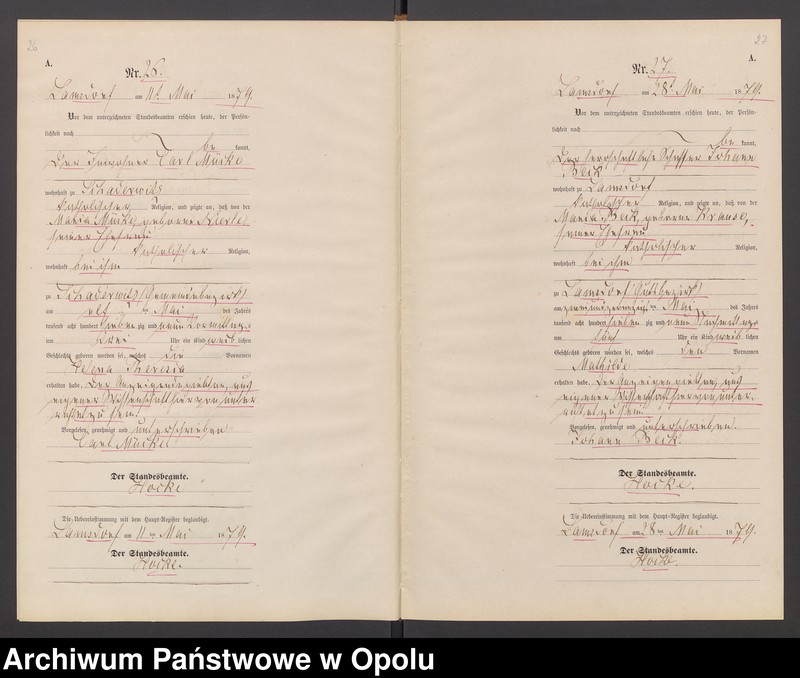 26
A.
Nr. 26.
Lamsdorf am 11t Mai 1879.
Vor dem unterzeichneten Standesbeamten erschien heute, der Persön-
lichkeit nach
be kannt,
Der Inwohner Carl Mücke
wohnhaft zu Schaderwitz
katholischer Religion, und zeigte an, daß von der
Maria Mücke, geborne
seiner Ehefrau
katholischer Religion,
wohnhaft bei ihm
zu Schaderwitz (Gemeindebezirk)
am elf ten Mai des Jahres
tausend acht hundert sieben zig und neun Vormittags
um Uhr ein Kind weib lichen
Geschlechts geboren worden sei, welches die Vornamen
Helena Theresia
erhalten habe. Der Anzeigende
eigener Wissenschaft hiervon unter
richtet zu sein.
Vorgelesen, genehmigt und unterschrieben
Carl Mücke
Der Standesbeamte.
Hocke
Die Uebereinstimmung mit dem Haupt-Register beglaubigt.
Lamsdorf am 11 ten Mai 1879.
Der Standesbeamte.
Hocke.
27
A.
Nr. 27.
Lamsdorf am 28t Mai 1879.
Vor dem unterzeichneten Standesbeamten erschien heute, der Persön-
lichkeit nach
be kannt,
Der herrschaftliche Schaffer Johann
Beik
wohnhaft zu Lamsdorf
katholischer Religion, und zeigte an, daß von der
Maria Beik, geborne Krause,
seiner Ehefrau
katholischer Religion,
wohnhaft bei ihm
zu Lamsdorf (Gutsbezirk)
am ten Mai des Jahres
tausend acht hundert sieben zig und neun Nachmittags
um fünf Uhr ein Kind weib lichen
Geschlechts geboren worden sei, welches den Vornamen
Mathilde
erhalten habe. Der Anzeigende
eigener Wissenschaft hiervon unter-
richtet zu sein
Vorgelesen, genehmigt und unterschrieben.
Johann Beik.
Der Standesbeamte.
Hocke.
Die Uebereinstimmung mit dem Haupt-Register beglaubigt.
Lamsdorf am 28 ten Mai 1879.
Der Standesbeamte.
Hocke.
Archiwum Państwowe w Opolu